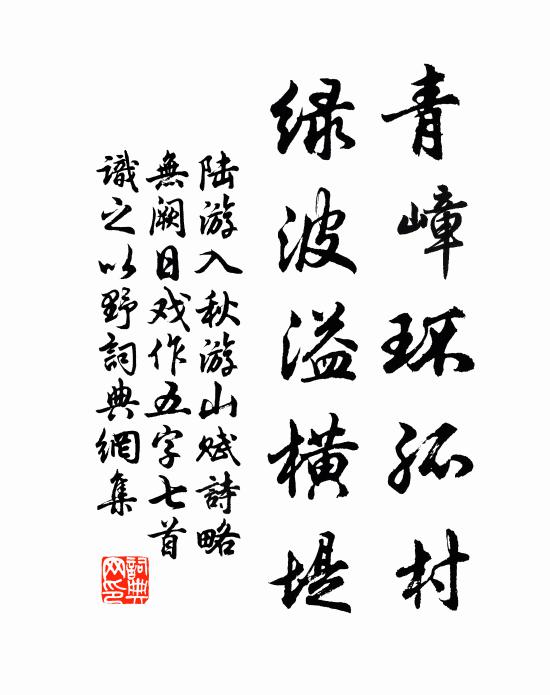 青嶂环孤村
绿波溢横堤
陆游入秋游山赋詩略
無阙日戏作五字七首
識之以野詞典網集
詞典网印